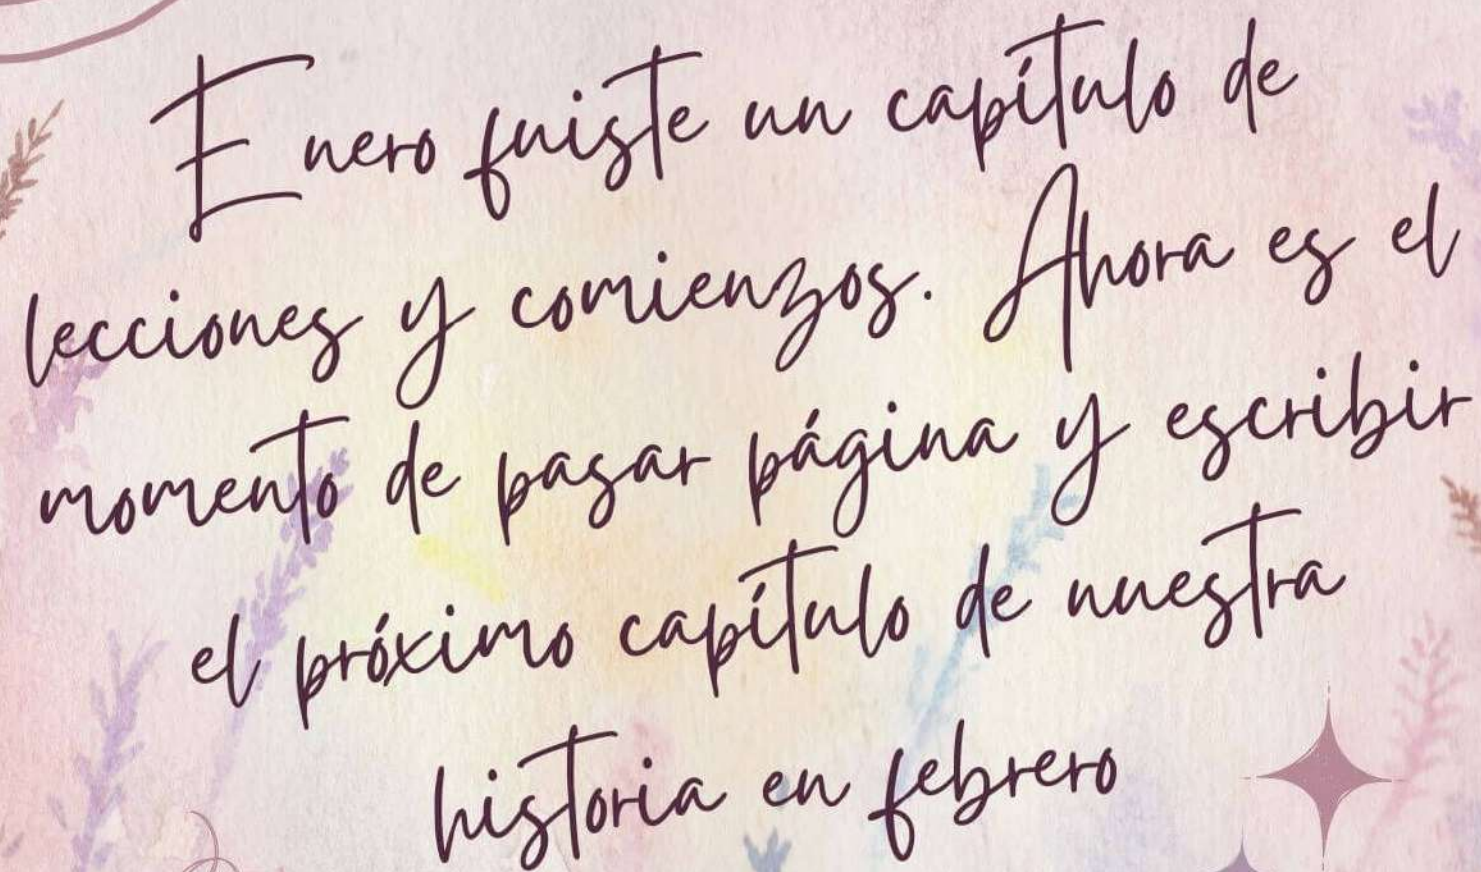 Enero fuiste un capítulo de
lecciones y comienzos. Ahora es el
momento de pasar página y escribir
el próximo capítulo de nuestra
historia en febrero